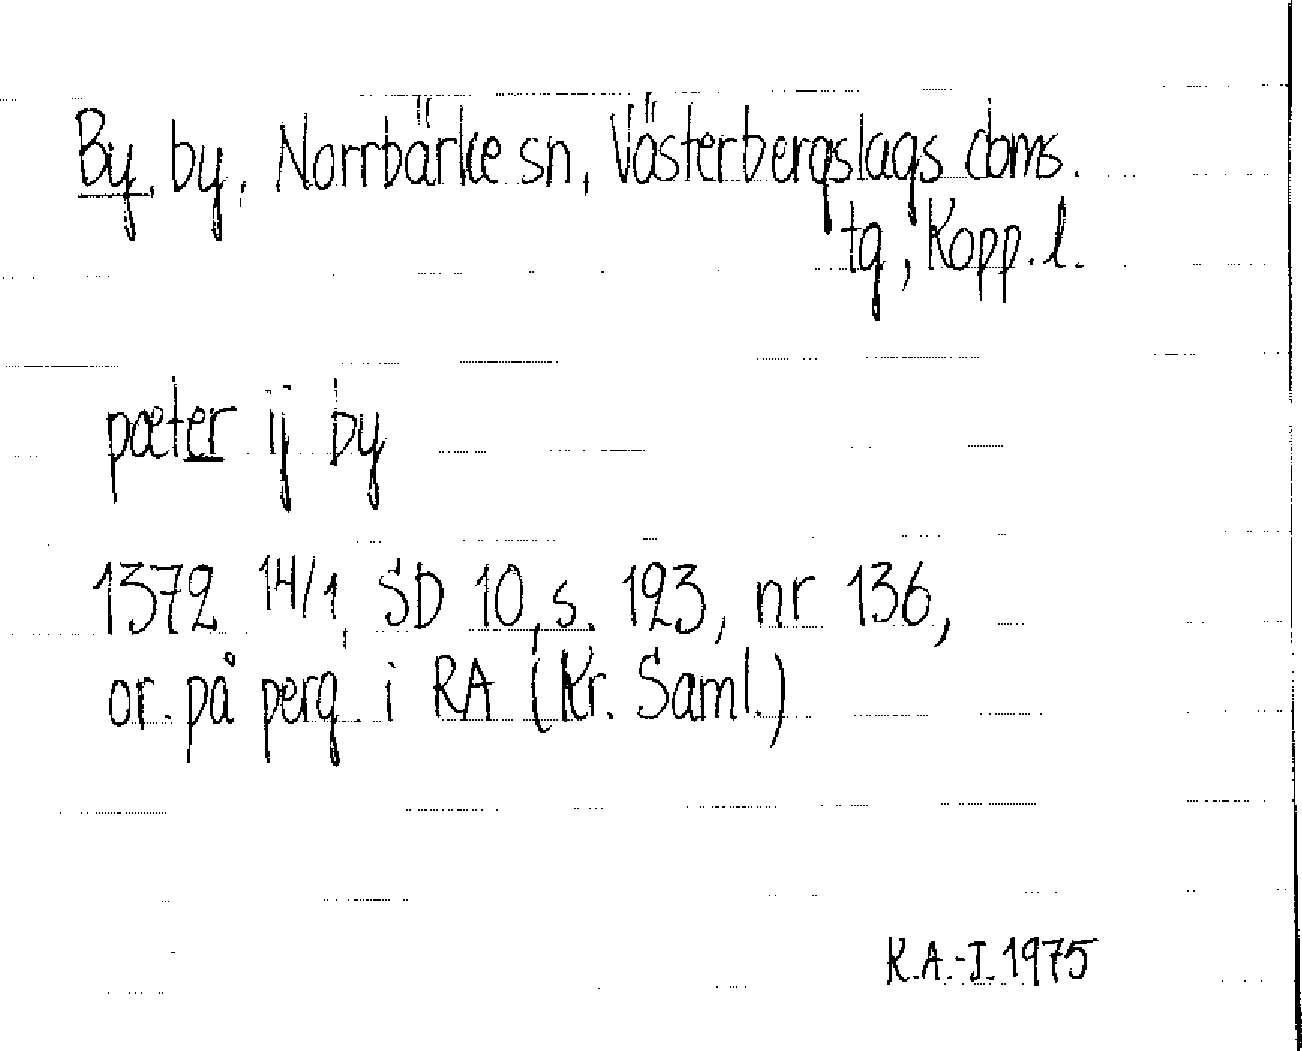 By, by, Norrbärke sn, Västerbergslags doms.
tg, Kopp. l.
pæter ij by
1372 14/1, SD 10, s. 123, nr 136,
or. på perg. i RA (Kr. Saml.)
K.A.-I. 1975